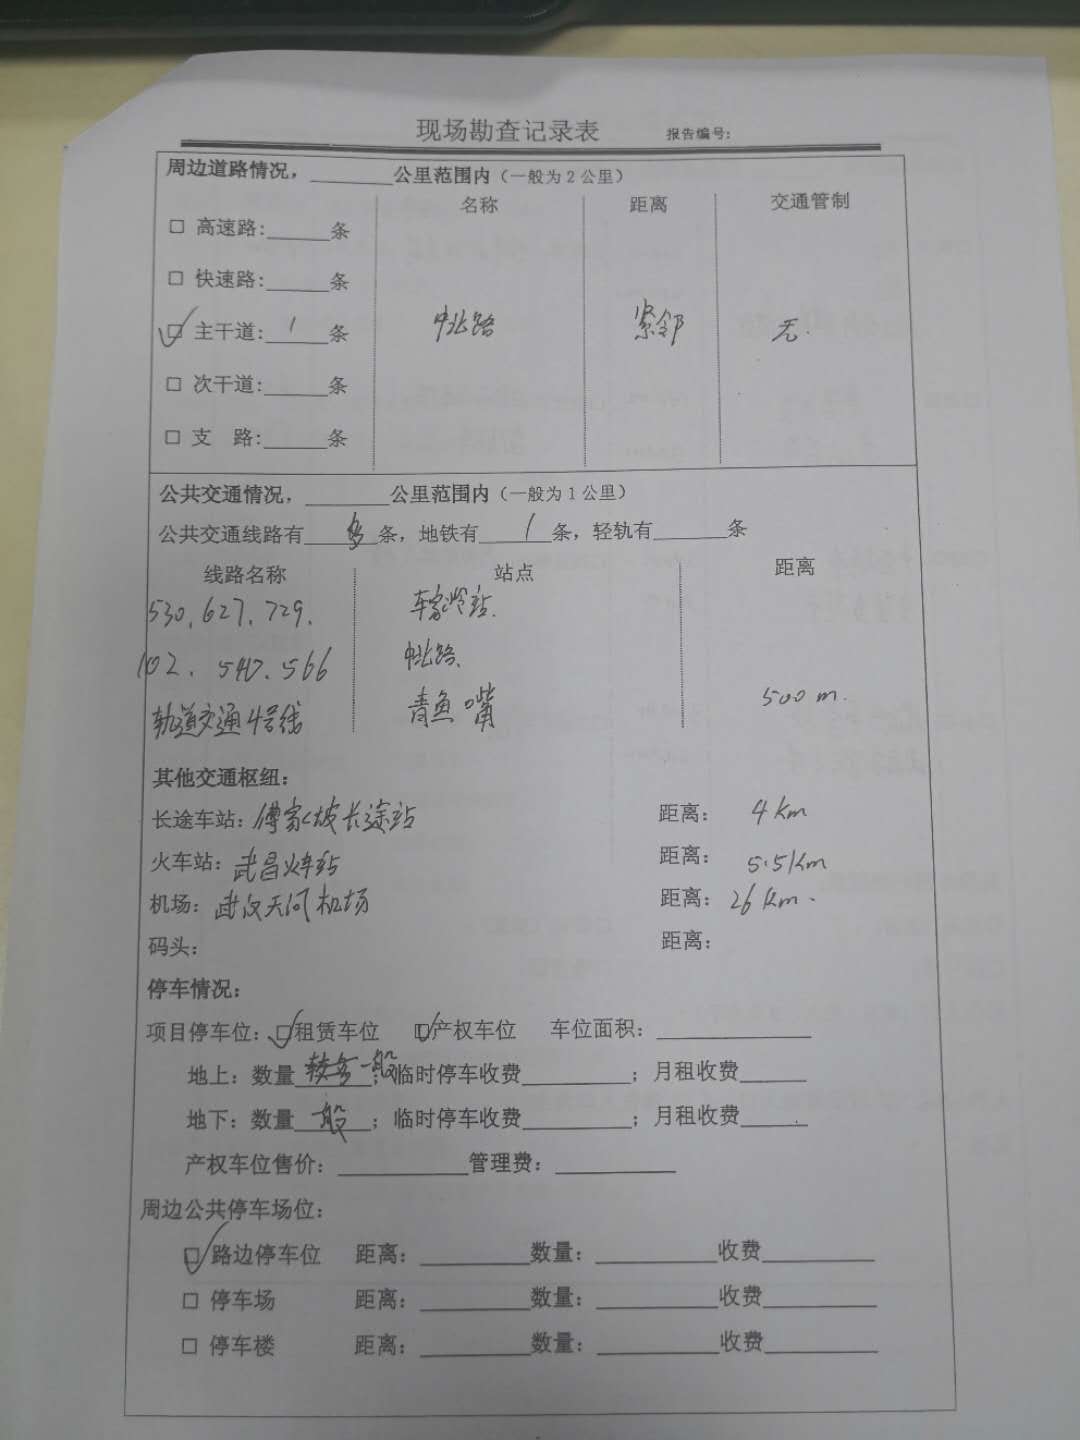 现场勘查记录表 报告编号:
周边道路情况，________公里范围内（一般为2公里）
名称 距离 交通管制
□ 高速路:______条
□ 快速路:______条
☑ 主干道: 1 条 中北路 紧邻 无.
□ 次干道:______条
□ 支 路:______条
公共交通情况，________公里范围内（一般为1公里）
公共交通线路有 多 条，地铁有 1 条，轻轨有_______条
线路名称 站点 距离
530.627.729. 车家岭站.
102. 540. 566 中北路.
轨道交通4号线 青鱼嘴 500m.
其他交通枢纽:
长途车站: 傅家坡长途站 距离: 4km
火车站: 武昌火车站 距离: 5.5km
机场: 武汉天河机场 距离: 26km.
码头: 距离:
停车情况:
项目停车位: ☑租赁车位 ☑产权车位 车位面积: ______________
地上: 数量 一般; 临时停车收费__________; 月租收费______
地下: 数量 一般; 临时停车收费__________; 月租收费______
产权车位售价: ____________管理费: ___________
周边公共停车场位:
☑ 路边停车位 距离: __________数量: ___________收费__________
□ 停车场 距离: __________数量: ___________收费__________
□ 停车楼 距离: __________数量: ___________收费__________